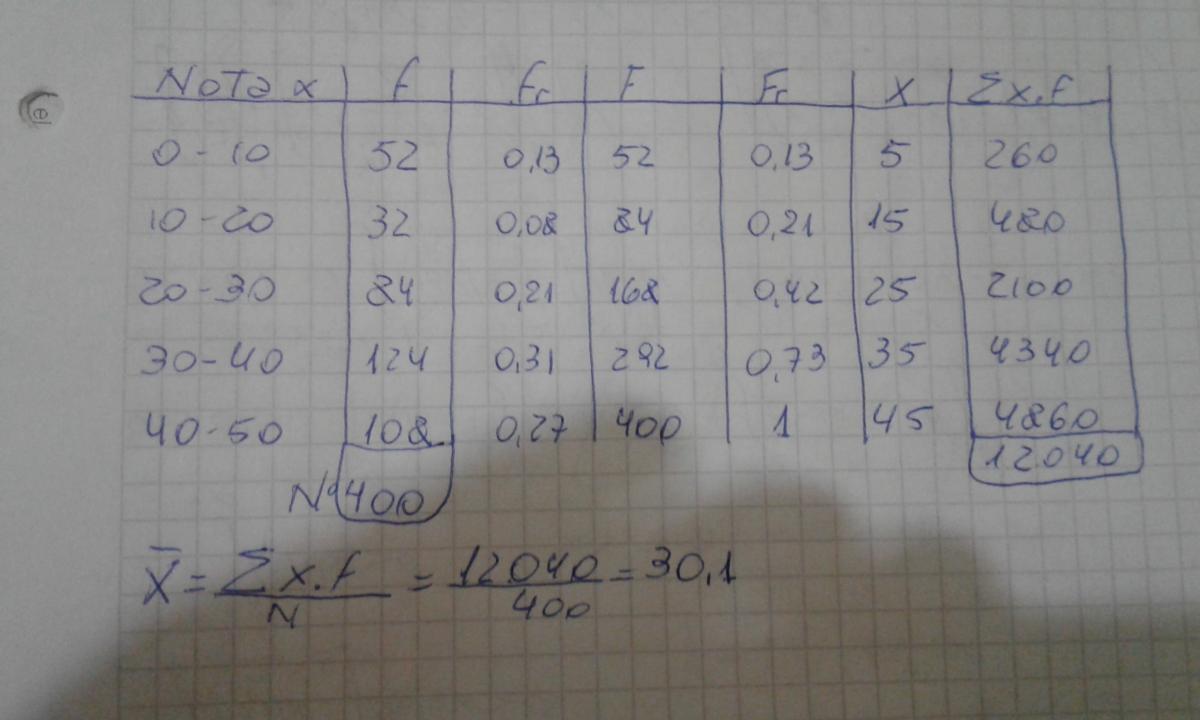 Nota x f fr F Fr X Σx.f
0-10 52 0,13 52 0,13 5 260
10-20 32 0,08 84 0,21 15 480
20-30 84 0,21 168 0,42 25 2100
30-40 124 0,31 292 0,73 35 4340
40-50 108 0,27 400 1 45 4860
12040
Nº 400
X̄ = Σx.f / N = 12040 / 400 = 30,1